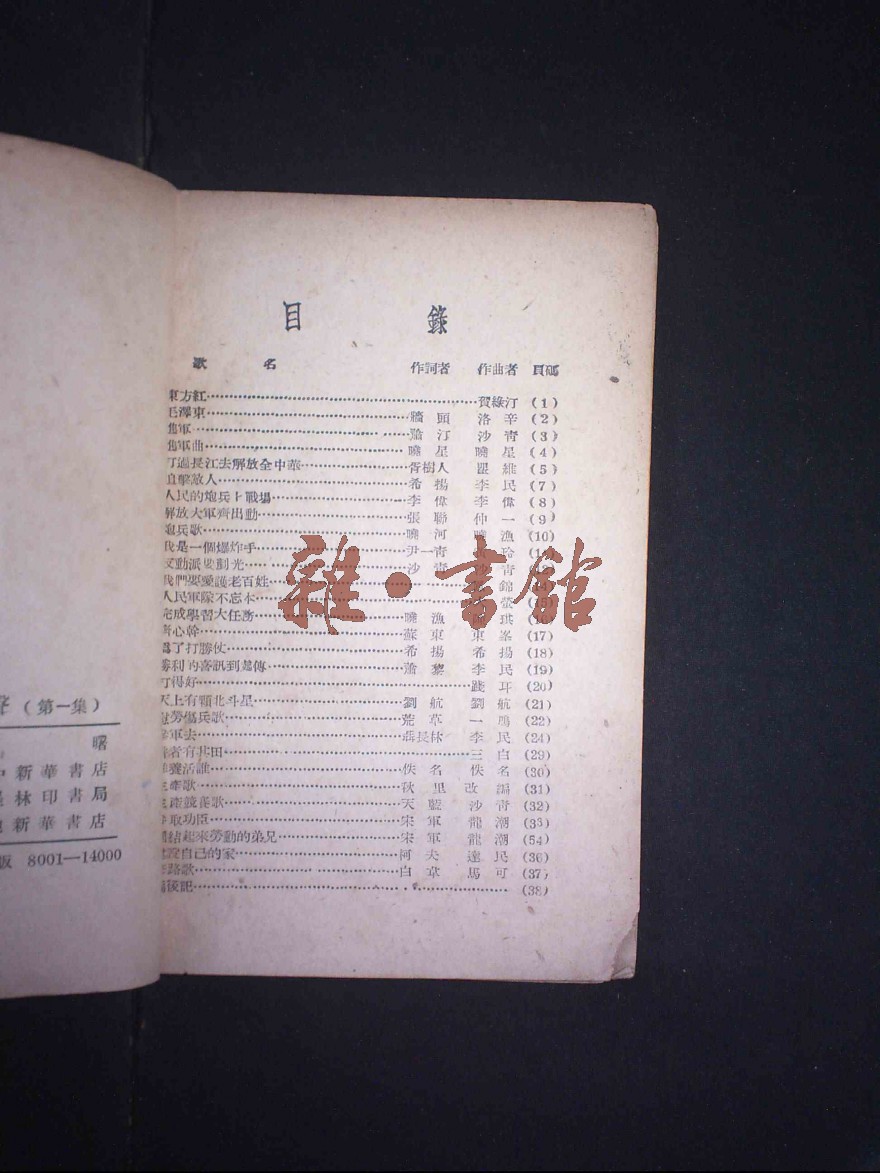 目錄
歌名 作詞者 作曲者 頁碼
東方紅 賀綠汀 (1)
毛澤東 牆頭 洛辛 (2)
軍 汀 沙青 (3)
軍曲 曉星 曉星 (4)
打過長江去解放全中華 胥樹人 罷維 (5)
直擊敵人 希揚 李民 (7)
人民的炮兵上戰場 李偉 李偉 (8)
解放大軍齊出動 張聯 仲一 (9)
炮兵歌 曉河 曉漁 (10)
我是一個爆炸手 尹一青 玲
反動派 光 沙青 沙青
我們要愛護老百姓 錦
人民軍隊不忘本
完成學習大任務 曉漁 琪
齊心幹 蘇東 東峯 (17)
為了打勝仗 希揚 希揚 (18)
勝利的喜訊到處傳 蕭黎 李民 (19)
打得好 踐耳 (20)
天上有顆北斗星 劉航 劉航 (21)
慰勞傷兵歌 荒草 一鳴 (22)
軍去 薛長林 李民 (24)
者有其田 三白 (29)
養活誰 佚名 佚名 (30)
生產歌 秋里 改編 (31)
生產競賽歌 天藍 沙青 (32)
爭取功臣 宋軍 龍潮 (33)
團結起來勞動的弟兄 宋軍 龍潮 (54)
自己的家 阿夫 達民 (36)
路歌 白韋 馬可 (37)
編後記 (38)
聲(第一集)
曙
中新華書店
林印書局
新華書店
版 8001—14000
雜·書館